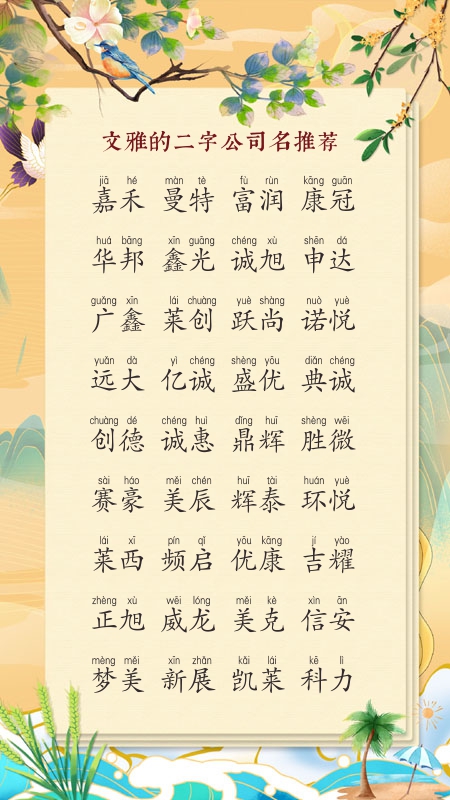 文雅的二字公司名推荐
jiā hé màn tè fù rùn kāng guān
嘉禾 曼特 富润 康冠
huá bāng xīn guāng chéng xù shēn dá
华邦 鑫光 诚旭 申达
guǎng xīn lái chuàng yuè shàng nuò yuè
广鑫 莱创 跃尚 诺悦
yuǎn dà yì chéng shèng yōu diǎn chéng
远大 亿诚 盛优 典诚
chuàng dé chéng huì dǐng huī shèng wēi
创德 诚惠 鼎辉 胜微
sài háo měi chén huī tài huán yuè
赛豪 美辰 辉泰 环悦
lái xī pín qǐ yōu kāng jí yào
莱西 频启 优康 吉耀
zhèng xù wēi lóng měi kè xìn ān
正旭 威龙 美克 信安
mèng měi xīn zhǎn kǎi lái kē lì
梦美 新展 凯莱 科力